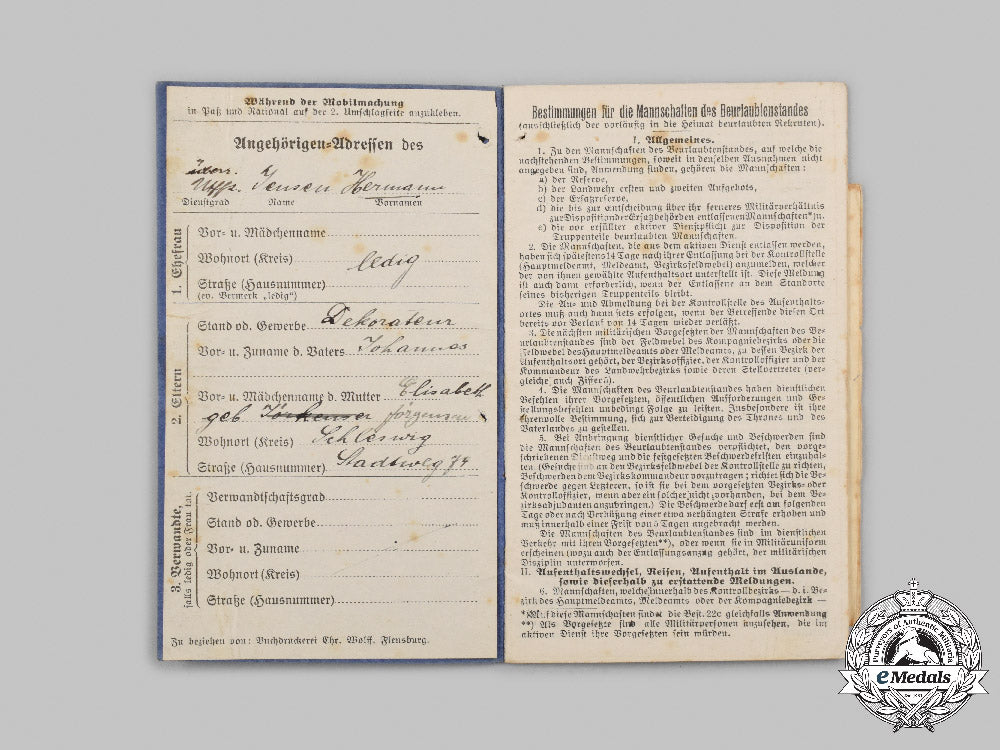 Während der Mobilmachung
in Paß und National auf der 2. Umschlagseite anzukleben.
Angehörigen-Adressen des
überz.
Uffz. Jensen Hermann
Dienstgrad Name Vornamen
1. Ehefrau
Vor- u. Mädchenname
Wohnort (Kreis) ledig
Straße (Hausnummer)
(ev. Vermerk „ledig")
2. Eltern
Stand od. Gewerbe Dekorateur
Vor- u. Zuname d. Vaters Johannes
Vor- u. Mädchenname d. Mutter Elisabeth
geb Jörgensen
Wohnort (Kreis) Schleswig
Straße (Hausnummer) Stadtweg 74
3. Verwandte,
falls ledig oder Frau tot.
Verwandtschaftsgrad
Stand od. Gewerbe
Vor- u. Zuname
Wohnort (Kreis)
Straße (Hausnummer)
Zu beziehen von: Buchdruckerei Chr. Wolff, Flensburg.
Bestimmungen für die Mannschaften des Beurlaubtenstandes
(ausschließlich der vorläufig in die Heimat beurlaubten Rekruten).
I. Allgemeines.
1. Zu den Mannschaften des Beurlaubtenstandes, auf welche die
nachstehenden Bestimmungen, soweit in denselben Ausnahmen nicht
angegeben sind, Anwendung finden, gehören die Mannschaften:
a) der Reserve,
b) der Landwehr ersten und zweiten Aufgebots,
c) der Ersatzreserve,
d) die bis zur Entscheidung über ihr ferneres Militärverhältnis
zur Disposition der Ersatzbehörden entlassenen Mannschaften*),
e) die vor erfüllter aktiver Dienstpflicht zur Disposition der
Truppenteile beurlaubten Mannschaften.
2. Die Mannschaften, die aus dem aktiven Dienst entlassen werden,
haben sich spätestens 14 Tage nach ihrer Entlassung bei der Kontrollstelle
(Hauptmeldeamt, Meldeamt, Bezirksfeldwebel) anzumelden, welcher
der von ihnen gewählte Aufenthaltsort unterstellt ist. Diese Meldung
ist auch dann erforderlich, wenn der Entlassene an dem Standorte
seines bisherigen Truppenteils bleibt.
Die An- und Abmeldung bei der Kontrollstelle des Aufenthalts-
ortes muß auch dann stets erfolgen, wenn der Betreffende diesen Ort
bereits vor Verlauf von 14 Tagen wieder verläßt.
3. Die nächsten militärischen Vorgesetzten der Mannschaften des Be-
urlaubtenstandes sind der Feldwebel des Kompagniebezirks oder die
Feldwebel des Hauptmeldeamts oder Meldeamts, zu dessen Bezirk der
Aufenthaltsort gehört, der Bezirksoffizier, der Kontrolloffizier und der
Kommandeur des Landwehrbezirks sowie deren Stellvertreter (ver-
gleiche auch Ziffer 5).
4. Die Mannschaften des Beurlaubtenstandes haben dienstlichen
Befehlen ihrer Vorgesetzten, öffentlichen Aufforderungen und Ge-
stellungsbefehlen unbedingt Folge zu leisten. Insbesondere ist ihre
ehrenvolle Bestimmung, sich zur Verteidigung des Thrones und des
Vaterlandes zu gestellen.
5. Bei Anbringung dienstlicher Gesuche und Beschwerden sind
die Mannschaften des Beurlaubtenstandes verpflichtet, den vorge-
schriebenen Dienstweg und die festgesetzten Beschwerdefristen einzuhal-
ten. (Gesuche sind an den Bezirksfeldwebel der Kontrollstelle zu richten,
Beschwerden dem Bezirkskommandeur vorzutragen; richtet sich die Be-
schwerde gegen Letzteren, so ist sie bei dem vorgesetzten Bezirks- oder
Kontrolloffizier, wenn aber ein solcher nicht vorhanden, bei dem Be-
zirksadjudanten anzubringen.) Die Beschwerde darf erst am folgenden
Tage oder nach Verbüßung einer etwa verhängten Strafe erhoben und
muß innerhalb einer Frist von 5 Tagen angebracht werden.
Die Mannschaften des Beurlaubtenstandes sind im dienstlichen
Verkehr mit ihren Vorgesetzten**), oder wenn sie in Militäruniform
erscheinen (wozu auch der Entlassungsanzug gehört, der militärischen
Disziplin unterworfen.
II. Aufenthaltswechsel, Reisen, Aufenthalt im Auslande,
sowie dieserhalb zu erstattende Meldungen.
6. Mannschaften, welche innerhalb des Kontrollbezirks — d. i. Be-
zirk des Hauptmeldeamts, Meldeamts oder der Kompagniebezirk —
*) Auf diese Mannschaften findet die Best. 22c gleichfalls Anwendung
**) Als Vorgesetzte sind alle Militärpersonen anzusehen, die im
aktiven Dienst ihre Vorgesetzten sein würden.
Purveyors of Authentic Militaria
eMedals